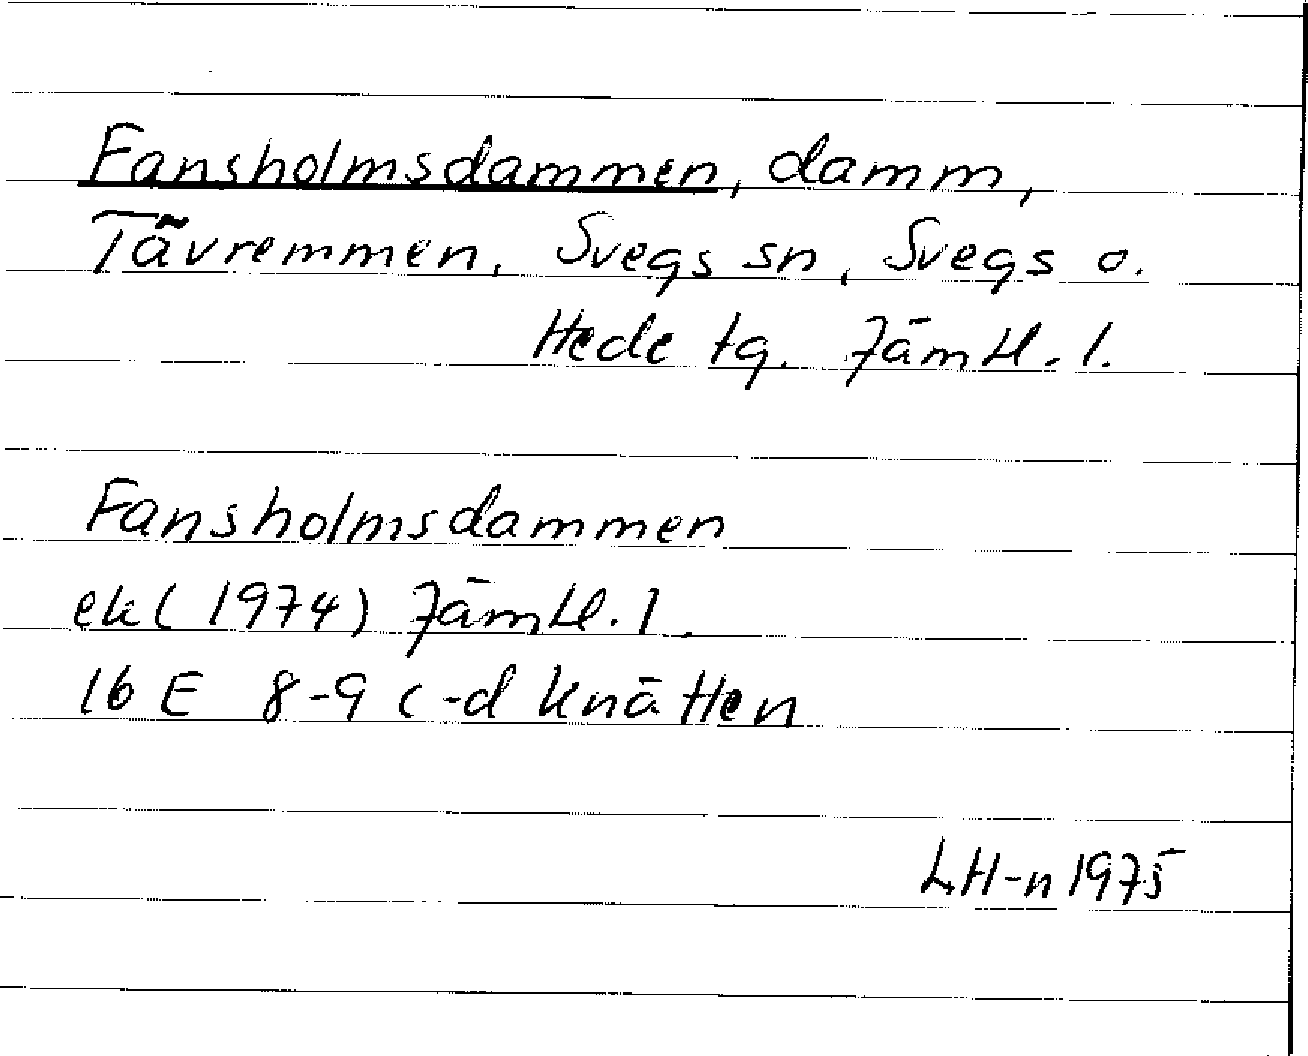 Fansholmsdammen, damm,
Tävremmen, Svegs sn, Svegs o.
Hede tg. Jämtl. l.
Fansholmsdammen
ek (1974) Jämtl. l.
16 E 8-9 c-d Knätten
LH-n 1975